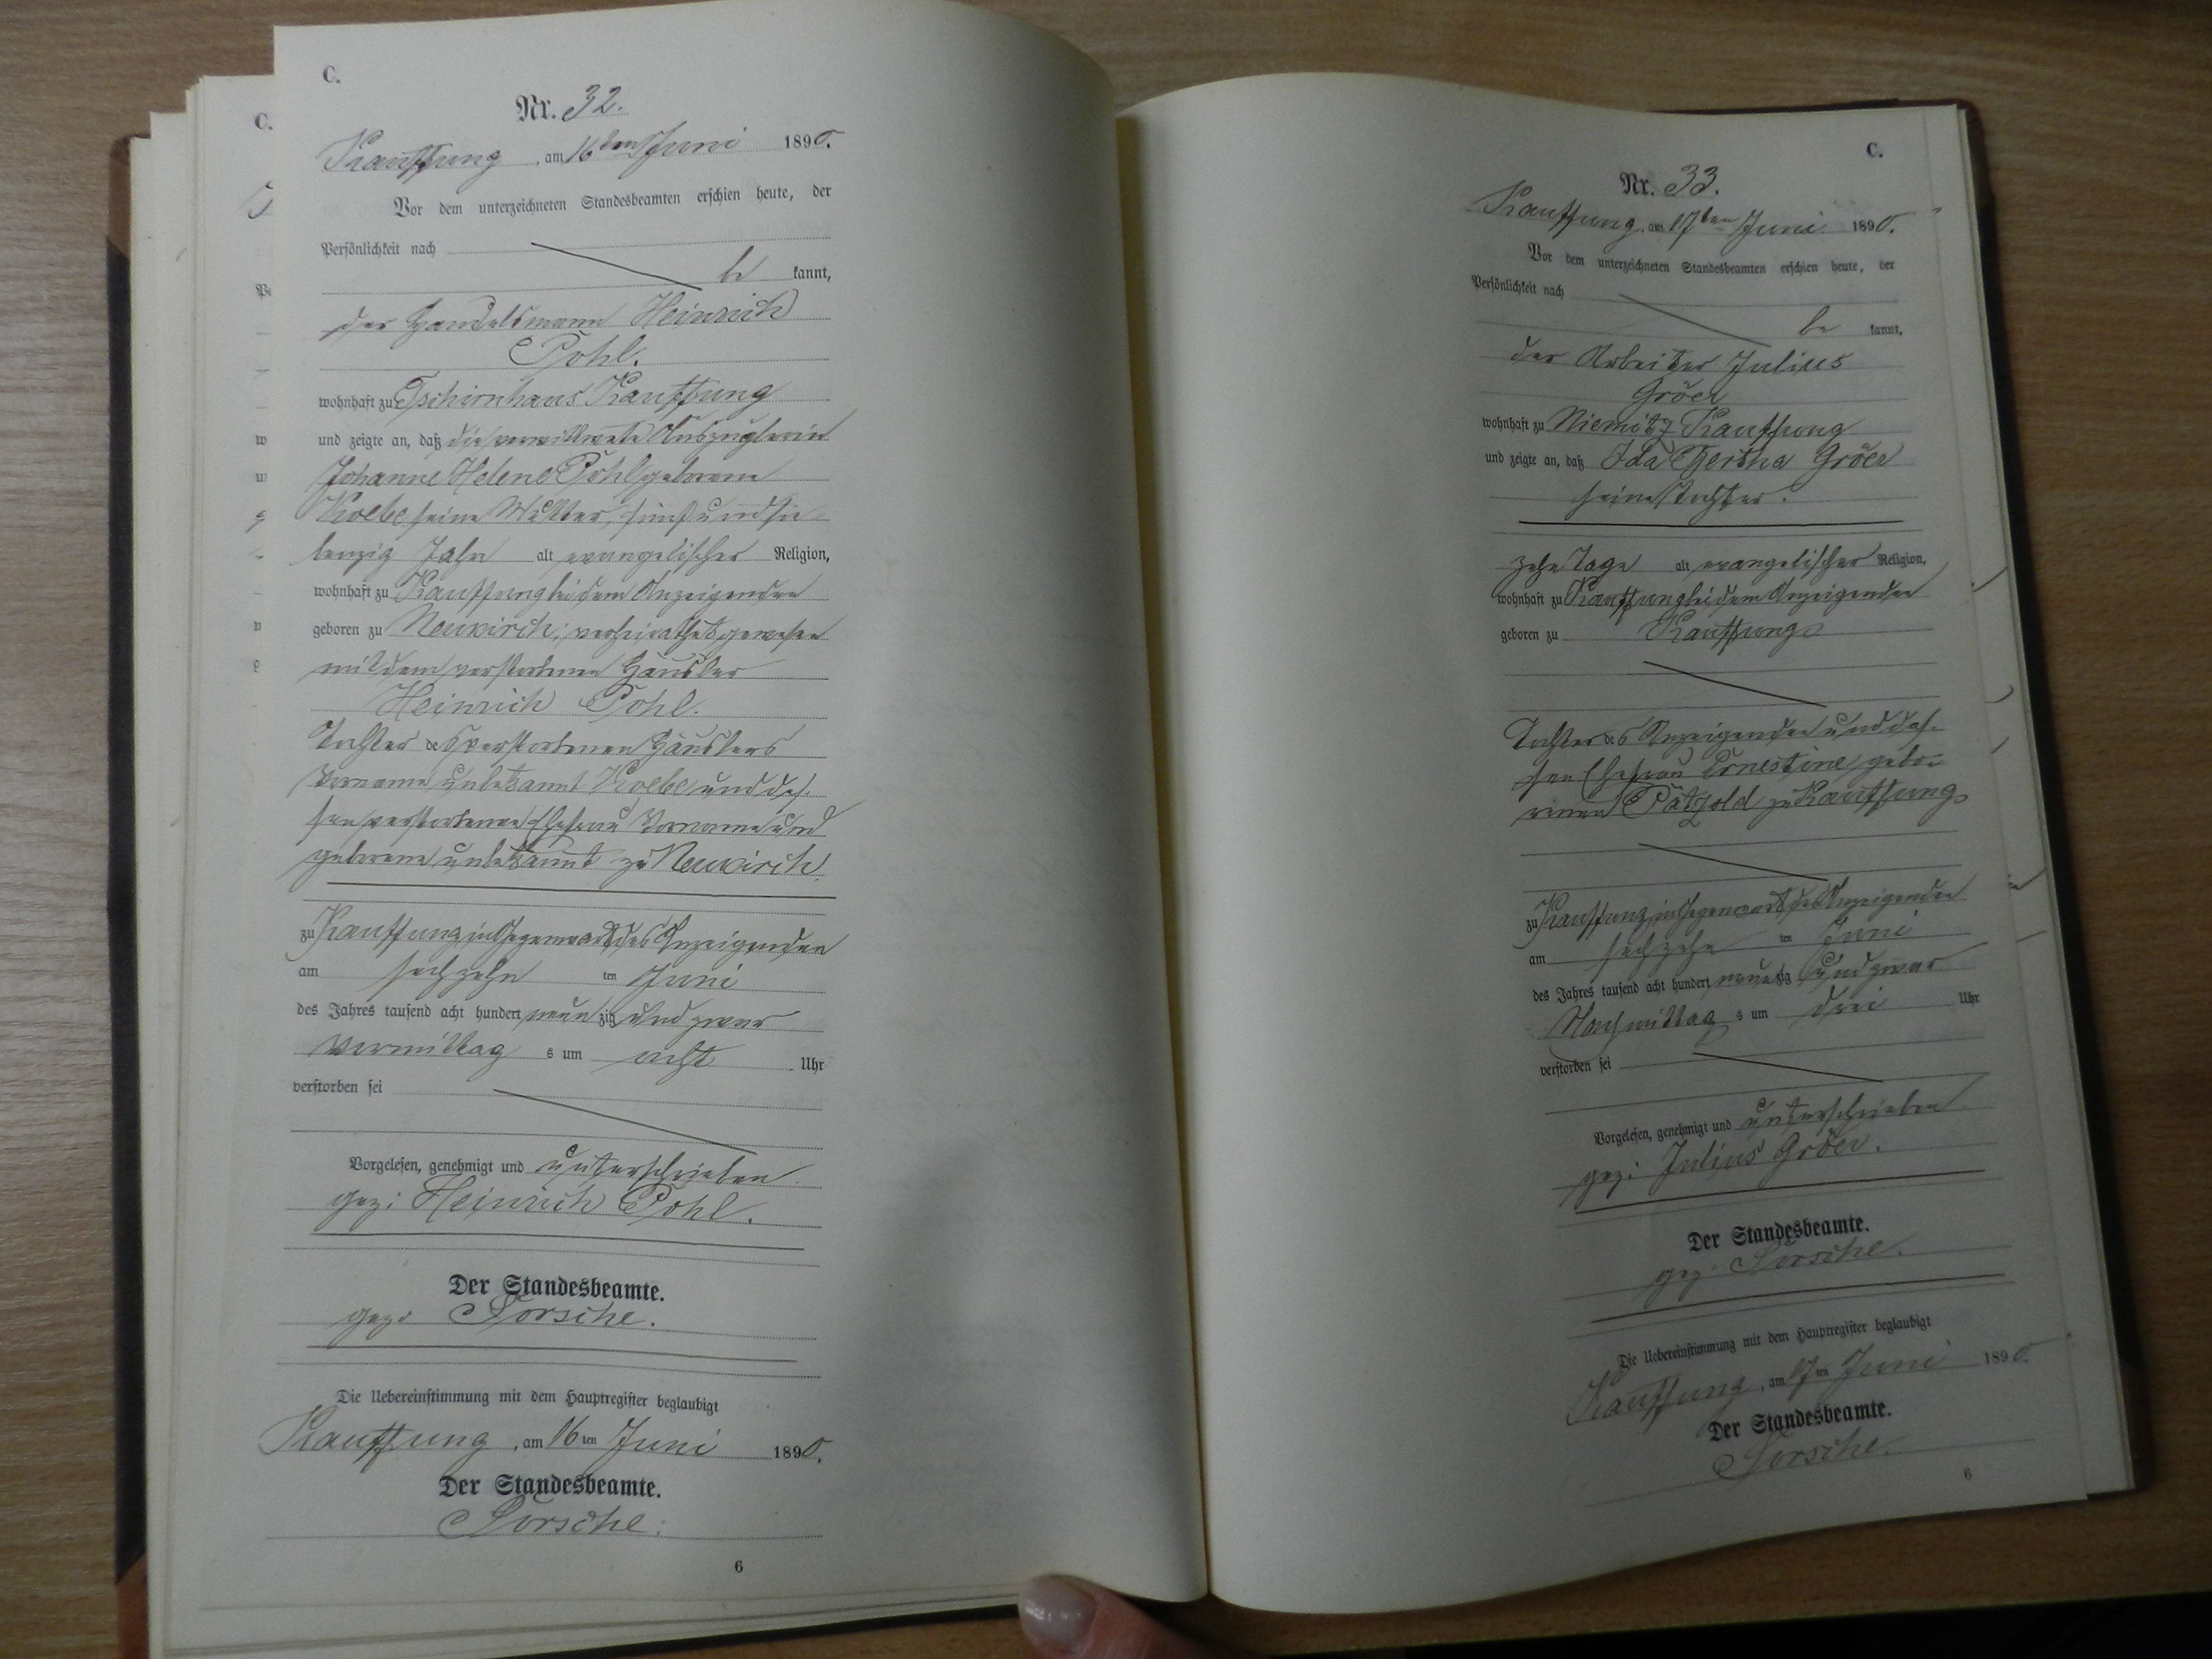 C.
Nr. 32.
Kauffung, am 16ten Juni 1890.
Vor dem unterzeichneten Standesbeamten erschien heute, der
Persönlichkeit nach
be kannt,
der Handelsmann Heinrich
Pohl.
wohnhaft zu Tschirnhaus Kauffung
und zeigte an, daß die verwittwete Auszüglerin
Johanne Helene Pohl geborene
Kolbe seine Mutter, fünfundsie-
benzig Jahr alt evangelischer Religion,
wohnhaft zu Kauffung bei dem Anzeigenden
geboren zu Neukirch; verheirathet gewesen
mit dem verstorbenen Häusler
Heinrich Pohl.
Tochter des verstorbenen Häuslers
Vorname unbekannt Kolbe und des-
sen verstorbenen Ehefrau Vorname und
geborene unbekannt zu Neukirch.
zu Kauffung in Gegenwart des Anzeigenden
am sechzehn ten Juni
des Jahres tausend acht hundert neunzig und zwar
Vormittag s um acht Uhr
verstorben sei
Vorgelesen, genehmigt und unterschrieben.
gez: Heinrich Pohl.
Der Standesbeamte.
gez:
Die Uebereinstimmung mit dem Hauptregister beglaubigt
Kauffung, am 16ten Juni 1890.
Der Standesbeamte.
6
C.
Nr. 33.
Kauffung, am 17ten Juni 1890.
Vor dem unterzeichneten Standesbeamten erschien heute, der
Persönlichkeit nach
be kannt,
der Arbeiter Julius
Gröer
wohnhaft zu Niemitz Kauffung
und zeigte an, daß Ida Bertha Gröer
seine Tochter.
zehn Tage alt evangelischer Religion,
wohnhaft zu Kauffung bei dem Anzeigenden
geboren zu Kauffung
Tochter des Anzeigenden und des-
sen Ehefrau Ernestine gebo-
renen Pätzold zu Kauffung
zu Kauffung in Gegenwart des Anzeigenden
am sechzehn ten Juni
des Jahres tausend acht hundert neunzig und zwar
Nachmittag s um drei Uhr
verstorben sei
Vorgelesen, genehmigt und unterschrieben.
gez: Julius Gröer.
Der Standesbeamte.
gez:
Die Uebereinstimmung mit dem Hauptregister beglaubigt
Kauffung, am 17ten Juni 1890.
Der Standesbeamte.
6